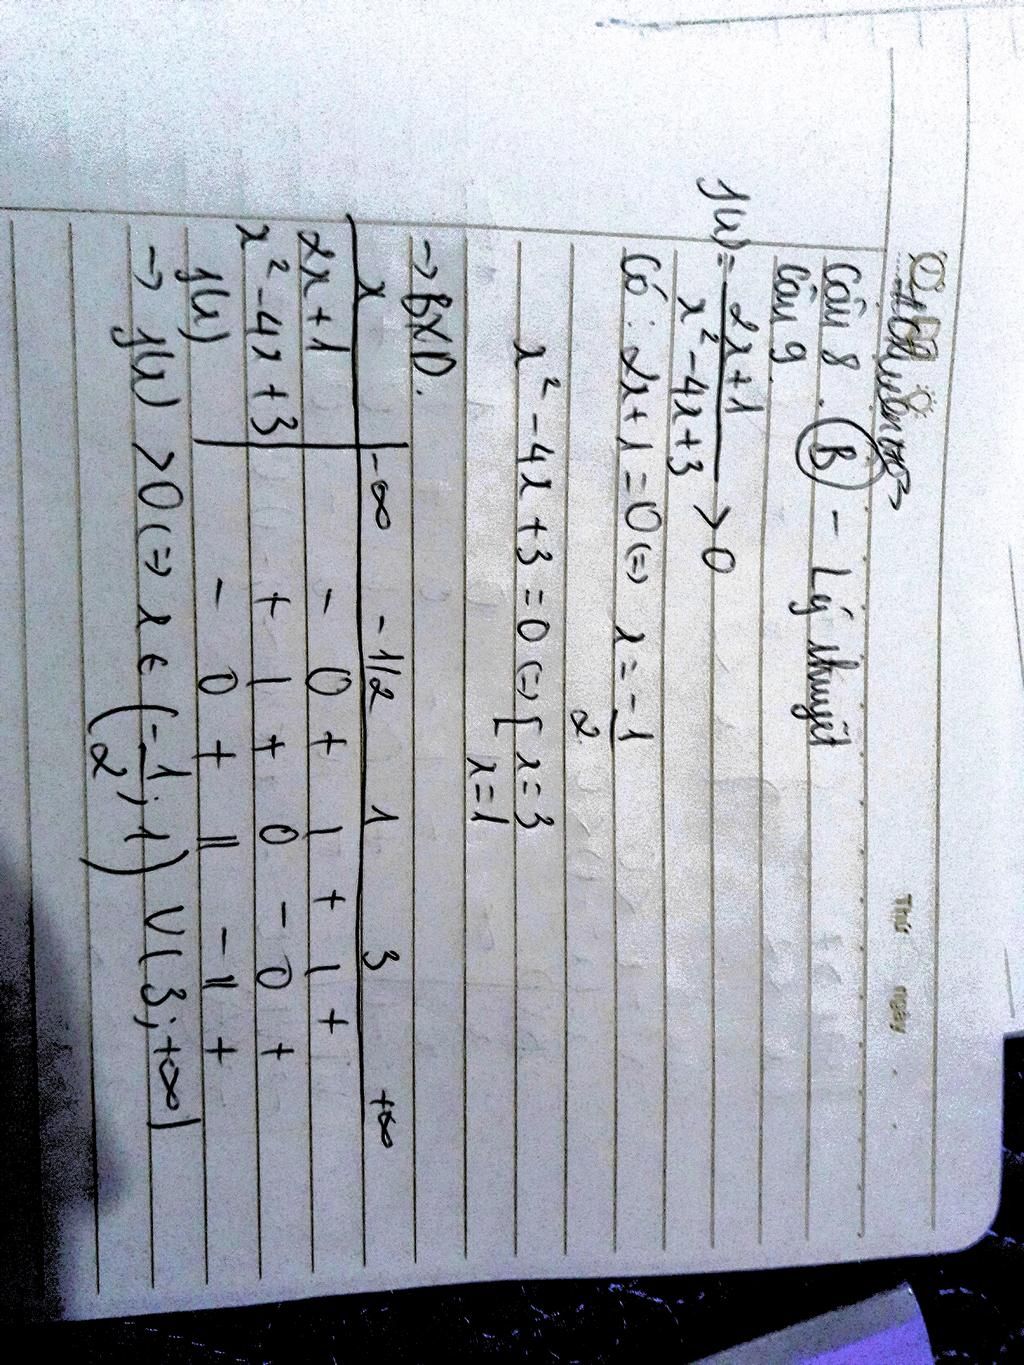 Thứ ngày
Câu 8. B - Lý thuyết
Câu 9
f(x) = (2x+1)/(x² - 4x + 3) > 0
Có : 2x + 1 = 0 (=) x = -1/2
x² - 4x + 3 = 0 (=) [ x = 3
x = 1
→ BXD.
x -∞ -1/2 1 3 +∞
2x + 1 - 0 + | + | +
x² - 4x + 3 + | + 0 - 0 +
f(x) - 0 + || - || +
→ f(x) > 0 (=) x ∈ (-1/2; 1) ∪ (3; +∞)